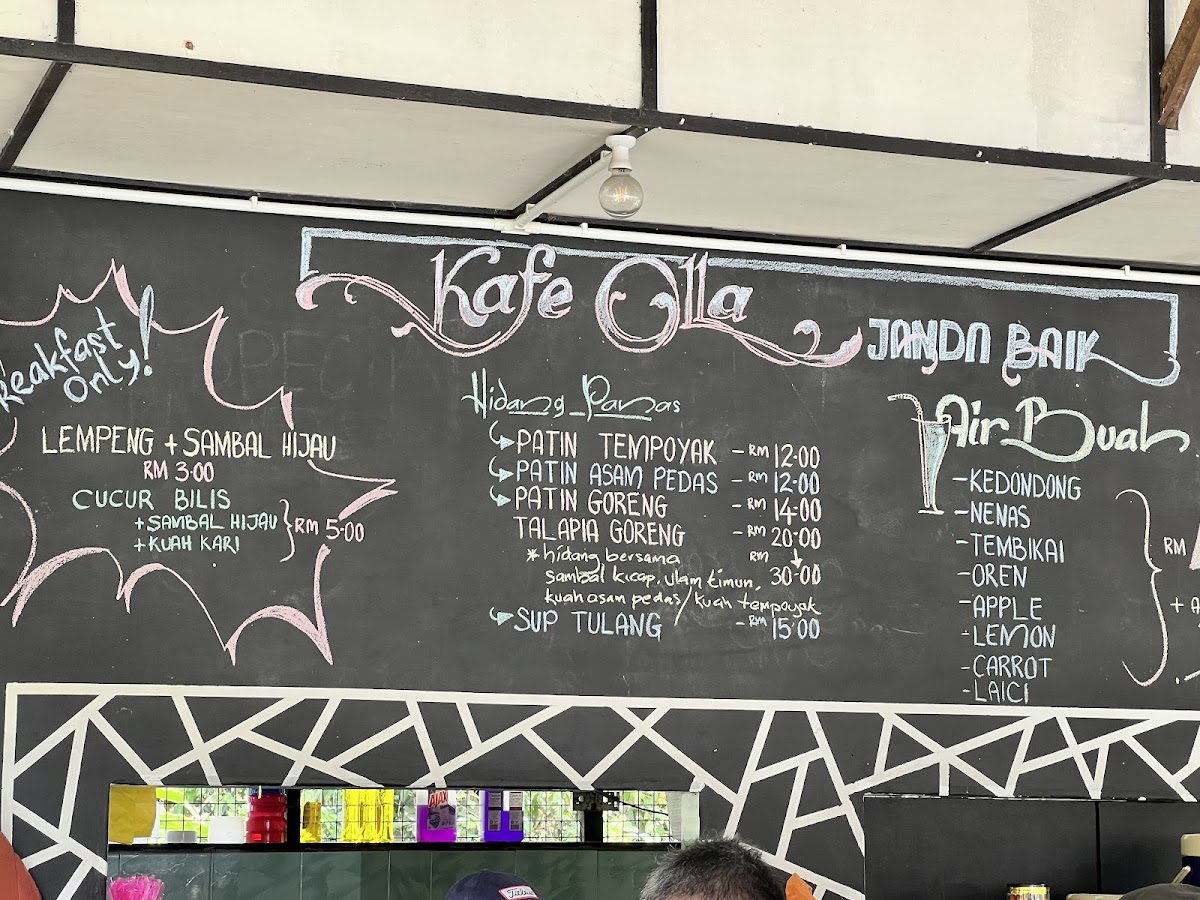 Kafe Olla
JANDA BAIK
Breakfast
Only!
LEMPENG + SAMBAL HIJAU
RM 3.00
CUCUR BILIS
+ SAMBAL HIJAU
+ KUAH KARI
RM 5.00
Hidang Panas
PATIN TEMPOYAK - RM 12.00
PATIN ASAM PEDAS - RM 12.00
PATIN GORENG - RM 14.00
TALAPIA GORENG - RM 20.00
* hidang bersama RM
sambal kicap, ulam timun, 30.00
kuah asam pedas / kuah tempoyak
SUP TULANG - RM 15.00
Air Buah
- KEDONDONG
- NENAS
- TEMBIKAI
- OREN
- APPLE
- LEMON
- CARROT
- LAICI
RM
+ A
AJAX